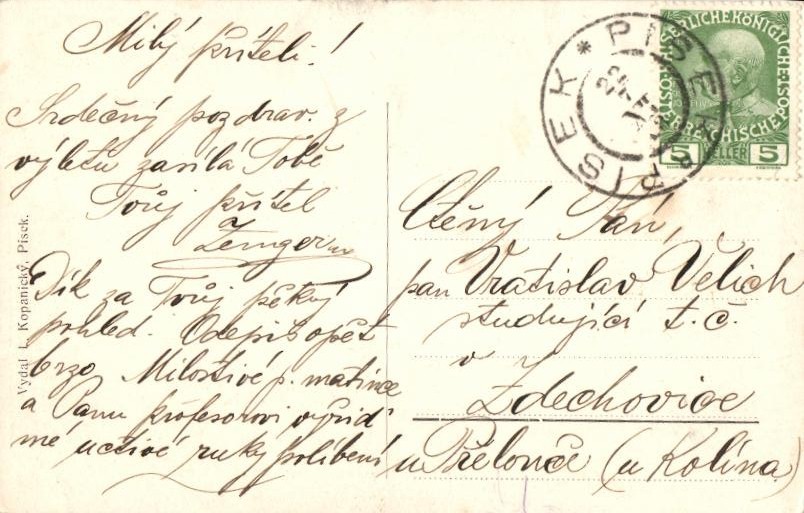 Milý příteli!
Srdečný pozdrav z
výletu zasílá Tobě
Tvůj přítel
Zenger
Dík za Tvůj pěkný
pohled. Odepiš opět
brzo. Milostivé p. matince
a Panu profesorovi vyřiď
mé uctivé ruky políbení
Vydal L. Kopanický, Písek.
PISEK * PISEK
KAISERLICHE KÖNIGLICHE
ÖSTERREICHISCHE POST
5 HELLER 5
Ctěný Pán,
pan Vratislav Velich
studující t. č.
v
Zdechovice
u Přelouče (u Kolína)